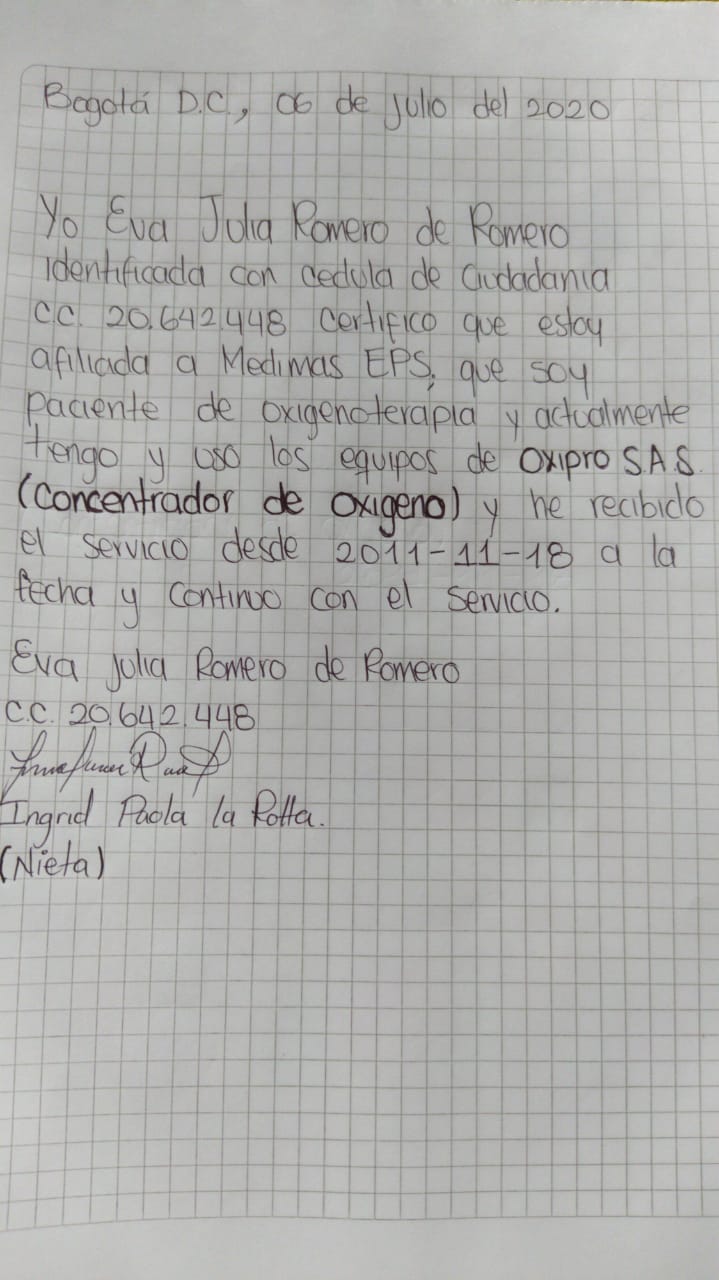 Bogotá D.C., 06 de julio del 2020
Yo Eva Julia Romero de Romero
identificada con cedula de Ciudadania
C.C. 20.642.448 certifico que estoy
afiliada a Medimas EPS, que soy
paciente de oxigenoterapia y actualmente
tengo y uso los equipos de OXIPRO S.A.S.
(Concentrador de oxigeno) y he recibido
el servicio desde 2011-11-18 a la
fecha y continuo con el servicio.
Eva Julia Romero de Romero
C.C. 20.642.448
Ingrid Paola la Rotta.
(Nieta)